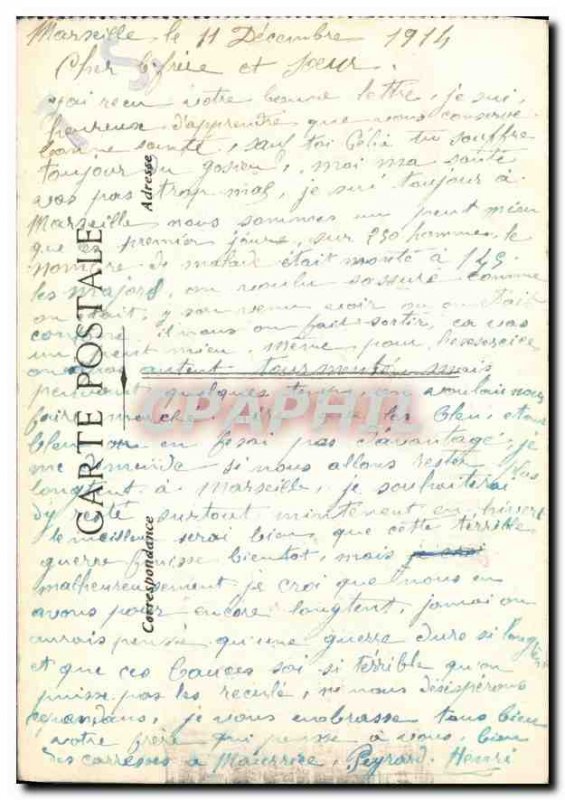 Marseille le 11 Décembre 1914
Cher frère et soeur.
j'ai recu votre bonne lettre, je suis
heureux d'apprendre que vous conservé
bonne santé, sauf toi Célia tu souffre
toujour du gosier, moi ma santé
vas pas trop mal, je sui toujour à
Marseille nous sommes un peut mieu
que les premier jours, sur 250 hommes le
nombre de malade était monté à 145
les majors, on voulu sassuré comme
on était, y son venu voir ou on était
il nous on fait sortir, ca vas
un peut mieu, même pour l'exercice
autent tourmenté mais
pendant quelques temps on voulais nous
faire marché les bleu, et les
bleu en fezai pas d'avantage, je
me si nous allons resté plus
longtent à Marseille, je souhaiterai
dy resté surtout mintenent en hivert
le meilleur serai bien, que cette terrible
guerre finisse bientot, mais
malheureusement je croi que nous en
avons pour encore longtent, jamai on
aurais pensé qu'une guerre dure si longtent
et que ces soi si terrible qu'on
puisse pas les reculé, ni nous désespérons
je vous embrasse tous bien
votre frère qui pense à vous, bien
des caresses à Maurrice, Peyrard Henri
CARTE POSTALE
Correspondance
Adresse
CPAPHIL